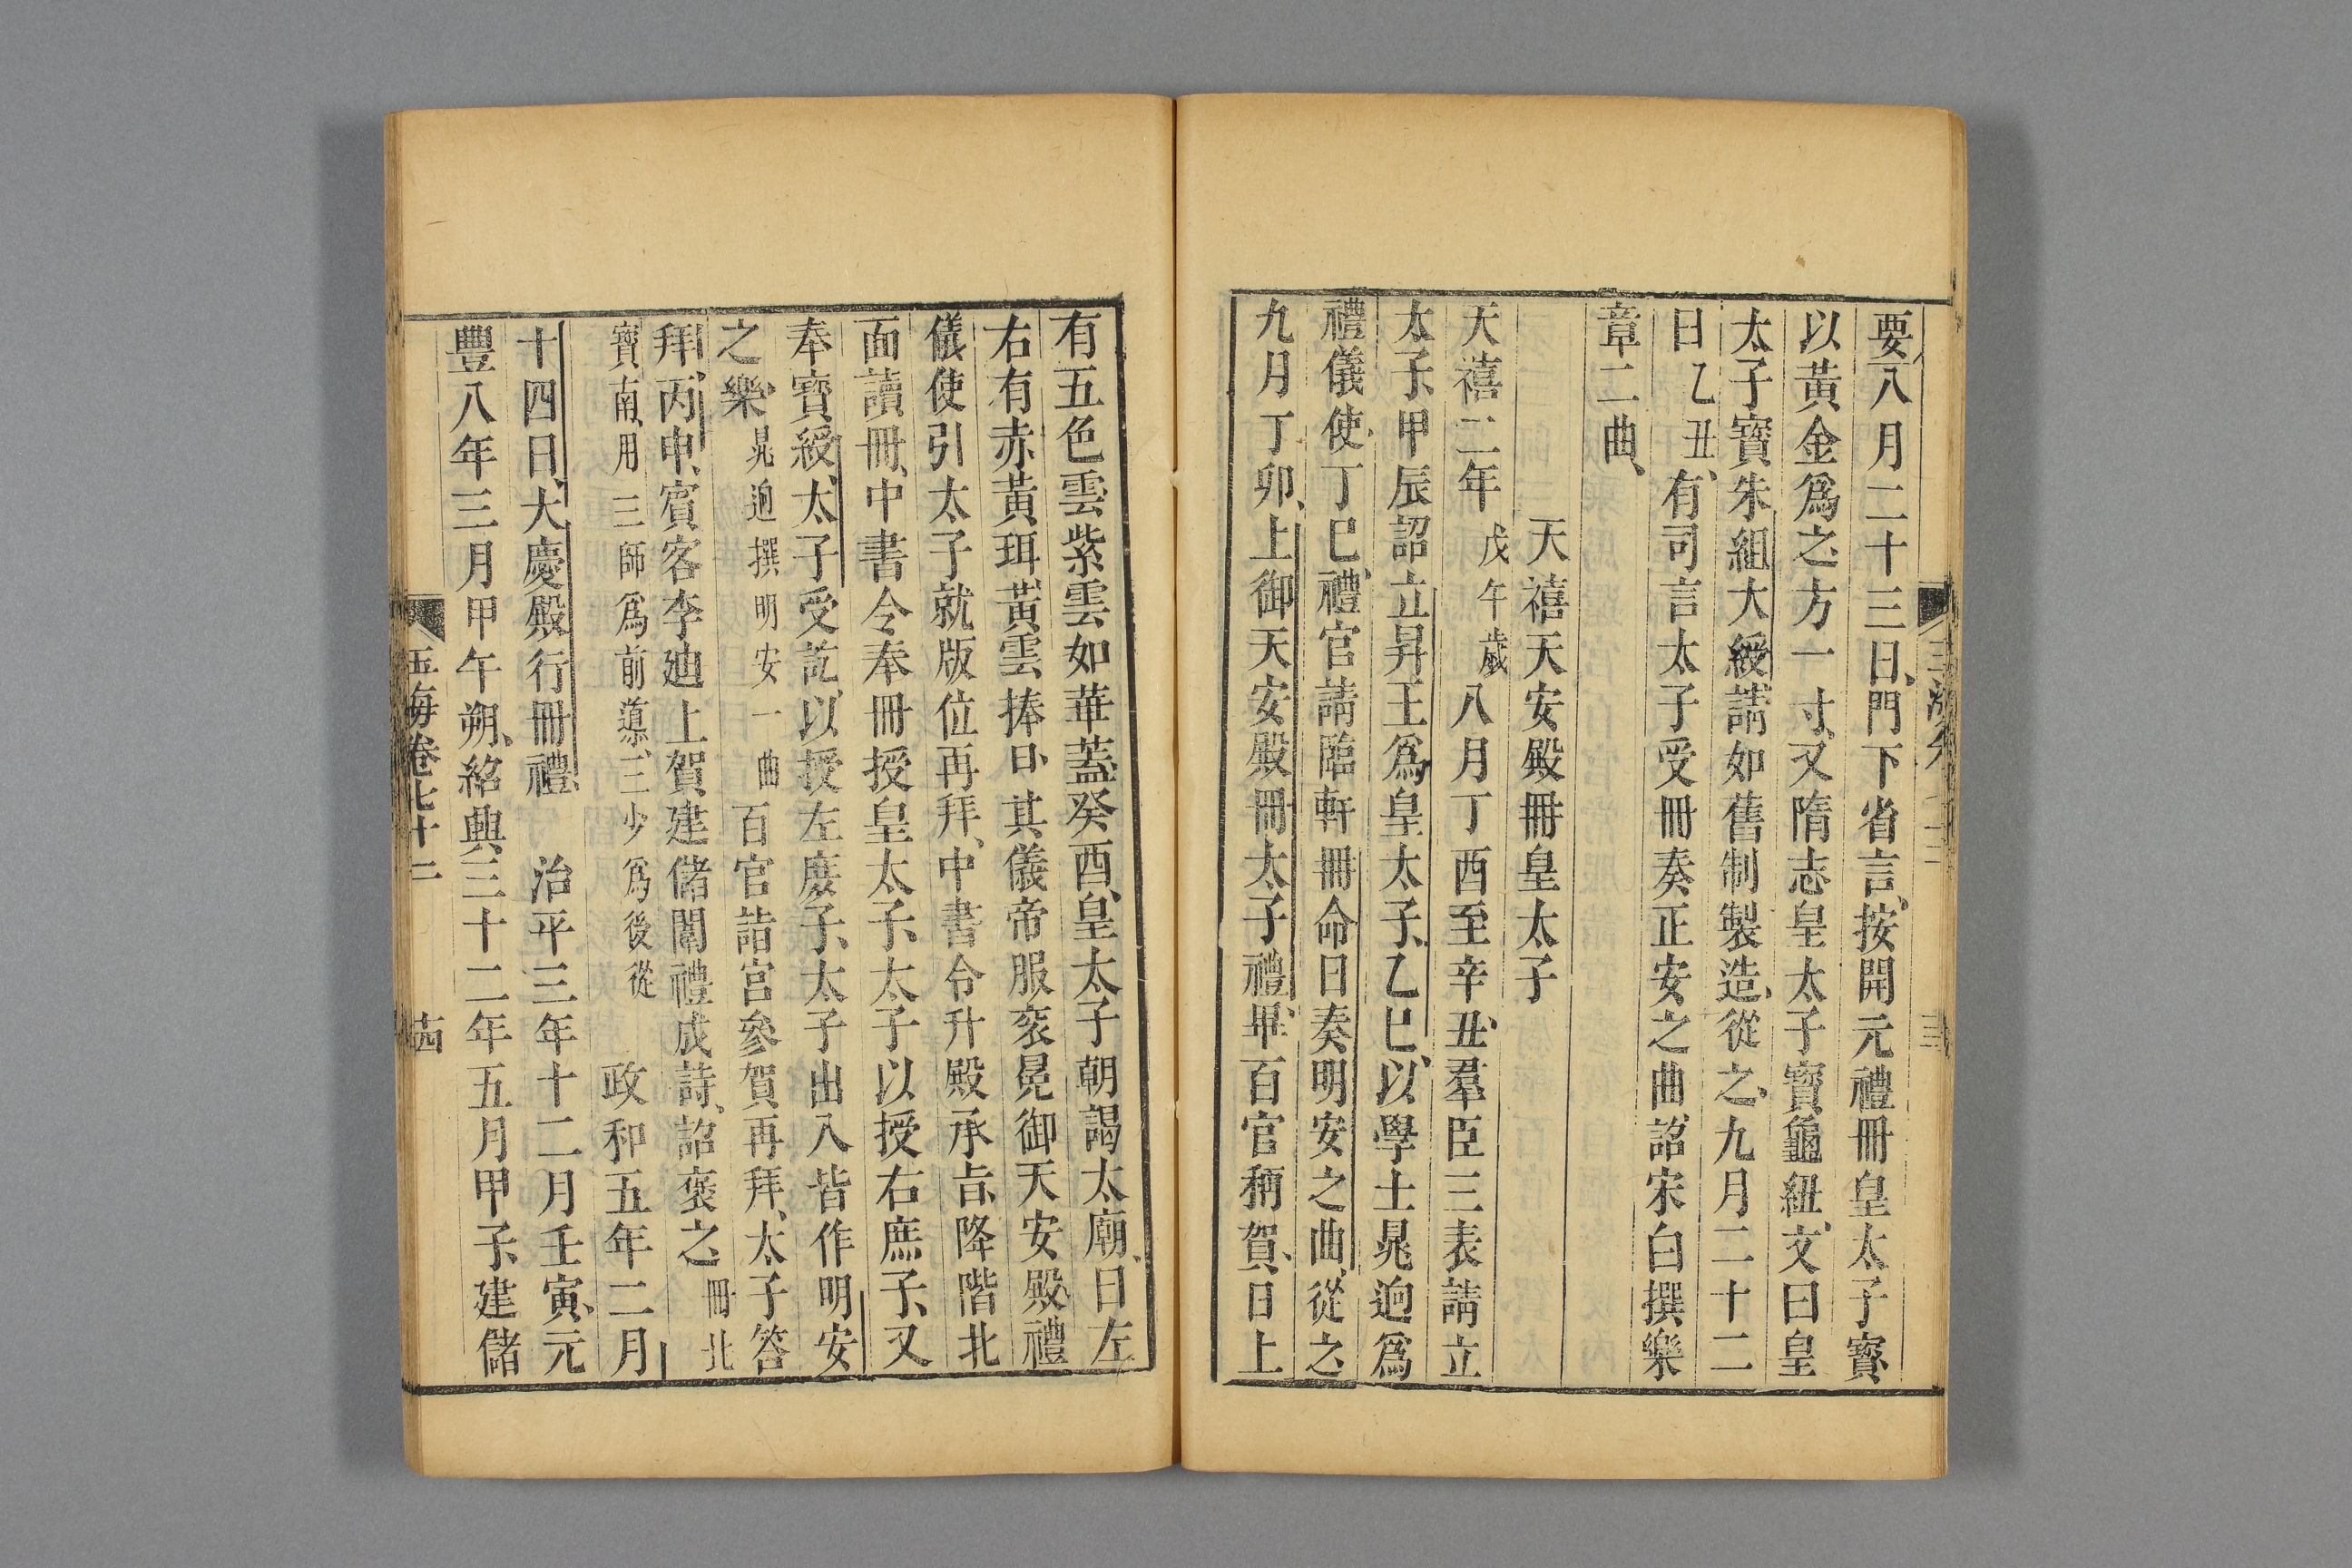 要八月二十三日門下省言按開元禮冊皇太子寶
以黃金爲之方一寸又隋志皇太子寶龜紐文曰皇
太子寶朱組大綬請如舊制製造從之九月二十二
日乙丑有司言太子受冊奏正安之曲詔宋白撰樂
章二曲
天禧天安殿冊皇太子
天禧二年戊午歲八月丁酉至辛丑羣臣三表請立
太子甲辰詔立昇王爲皇太子乙巳以學士晁迥爲
禮儀使丁巳禮官請臨軒冊命日奏明安之曲從之
九月丁卯上御天安殿冊太子禮畢百官稱賀日上
有五色雲紫雲如華蓋癸酉皇太子朝謁太廟日左
右有赤黃珥黃雲捧日其儀帝服袞冕御天安殿禮
儀使引太子就版位再拜中書令升殿承旨降階北
面讀冊中書令奉冊授皇太子太子以授右庶子又
奉寶綬太子受訖以授左庶子太子出入皆作明安
之樂晁迥撰明安一曲百官詣宮參賀再拜太子答
拜丙申賓客李迪上賀建儲闈禮成詩詔褒之冊北
寶南用三師爲前導三少爲後從 政和五年二月
十四日大慶殿行冊禮 治平三年十二月壬寅元
豐八年三月甲午朔紹興三十二年五月甲子建儲
玉海卷七十二 十四